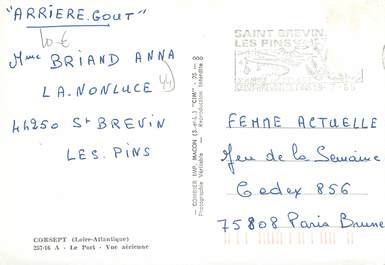 "ARRIERE.GOUT"
10 €
Mme BRIAND ANNA
LA.NONLUCE
44
44250 St BREVIN
LES.PINS
CORSEPT (Loire-Atlantique)
257-16 A - Le Port - Vue aérienne
COMBIER IMP. MACON (S.-&-L.) "CIM"
Photographie Véritable - Reproduction Interdite
SAINT BREVIN
LES PINS
FEMME ACTUELLE
Jeu de la Semaine
Cedex 856
75808 Paris Brune